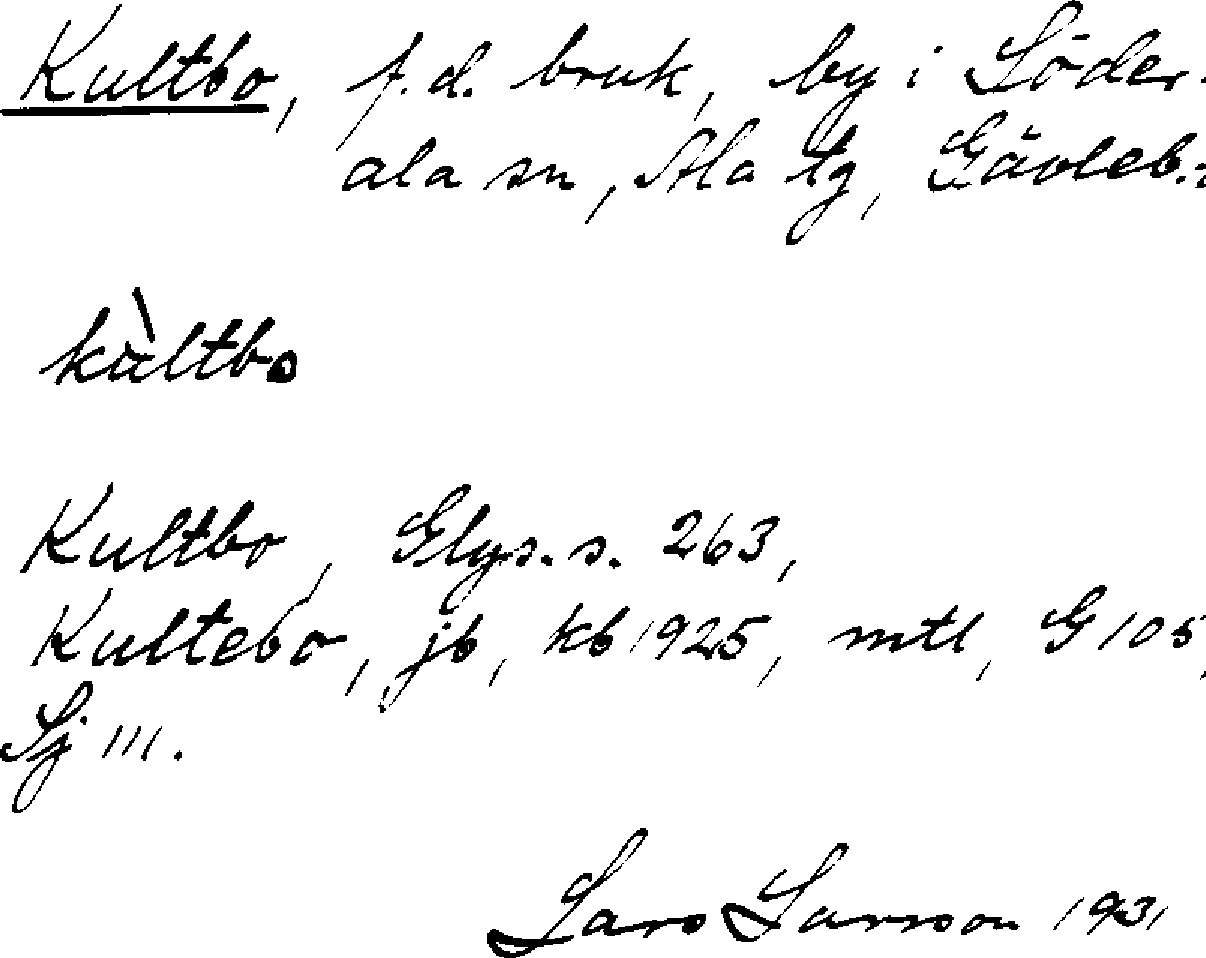 Kultbo, f.d. bruk, by i Söder-
ala sn, Ala tg, Gävleb.:
kùltbo
Kultbo, Glys. s. 263,
Kultebo, jb, kb 1925, mtl, G 105,
Sj III.
Lars Larsson 1931